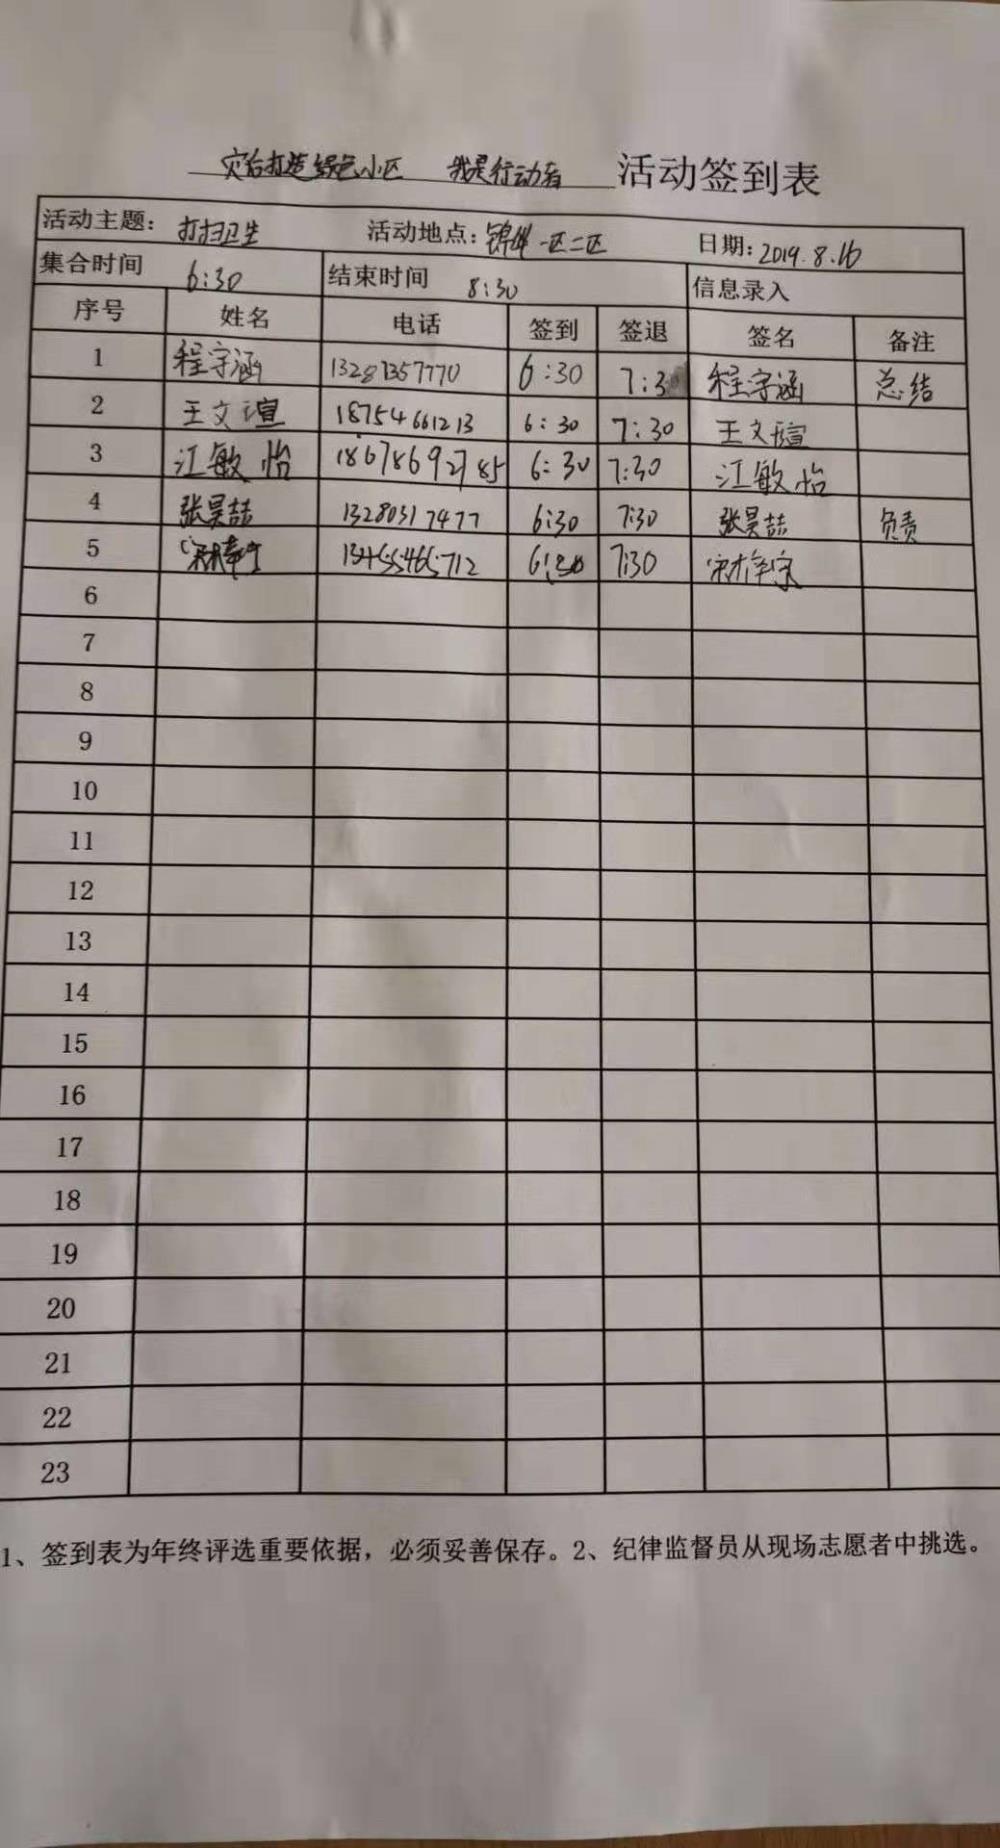 灾后打造绿色小区 我是行动者 活动签到表
活动主题: 打扫卫生 活动地点: 锦华一区二区 日期: 2019.8.16
集合时间 6:30 结束时间 8:30 信息录入
序号 姓名 电话 签到 签退 签名 备注
1 程宇涵 13287357770 6:30 7:30 程宇涵 总结
2 王文瑄 18754661213 6:30 7:30 王文瑄
3 江敏怡 18678692785 6:30 7:30 江敏怡
4 张昊喆 13280317477 6:30 7:30 张昊喆 负责
5 13455465712 6:30 7:30
6
7
8
9
10
11
12
13
14
15
16
17
18
19
20
21
22
23
1、签到表为年终评选重要依据，必须妥善保存。2、纪律监督员从现场志愿者中挑选。